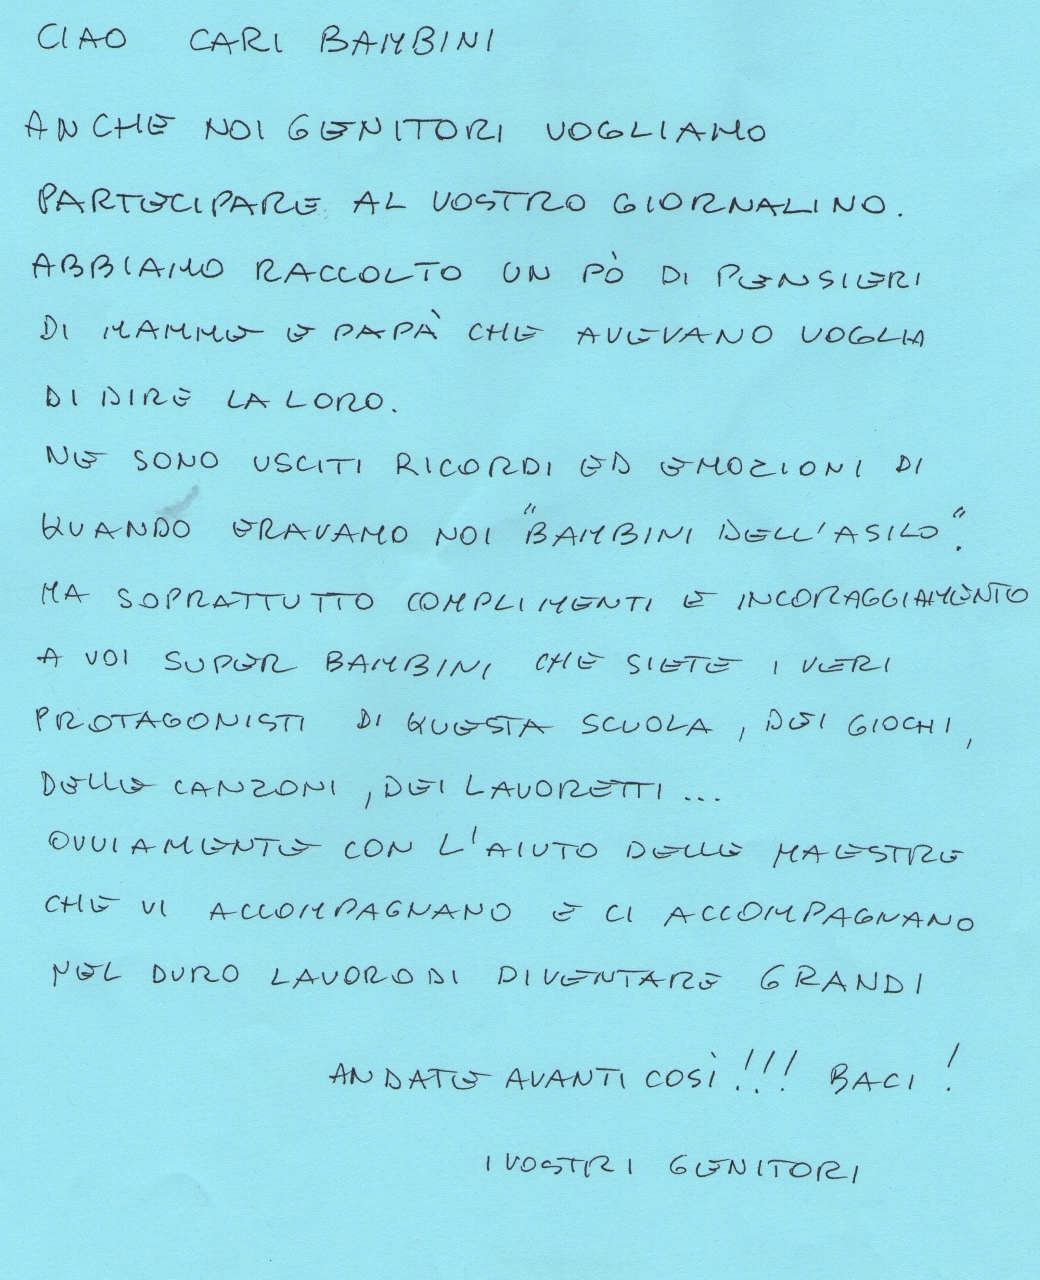 CIAO CARI BAMBINI
ANCHE NOI GENITORI VOGLIAMO
PARTECIPARE AL VOSTRO GIORNALINO.
ABBIAMO RACCOLTO UN PÒ DI PENSIERI
DI MAMME E PAPÀ CHE AVEVANO VOGLIA
DI DIRE LA LORO.
NE SONO USCITI RICORDI ED EMOZIONI DI
QUANDO ERAVAMO NOI "BAMBINI DELL'ASILO".
MA SOPRATTUTTO COMPLIMENTI E INCORAGGIAMENTO
A VOI SUPER BAMBINI CHE SIETE I VERI
PROTAGONISTI DI QUESTA SCUOLA, DEI GIOCHI,
DELLE CANZONI, DEI LAVORETTI...
OVVIAMENTE CON L'AIUTO DELLE MAESTRE
CHE VI ACCOMPAGNANO E CI ACCOMPAGNANO
NEL DURO LAVORO DI DIVENTARE GRANDI
ANDATE AVANTI COSÌ!!! BACI!
I VOSTRI GENITORI